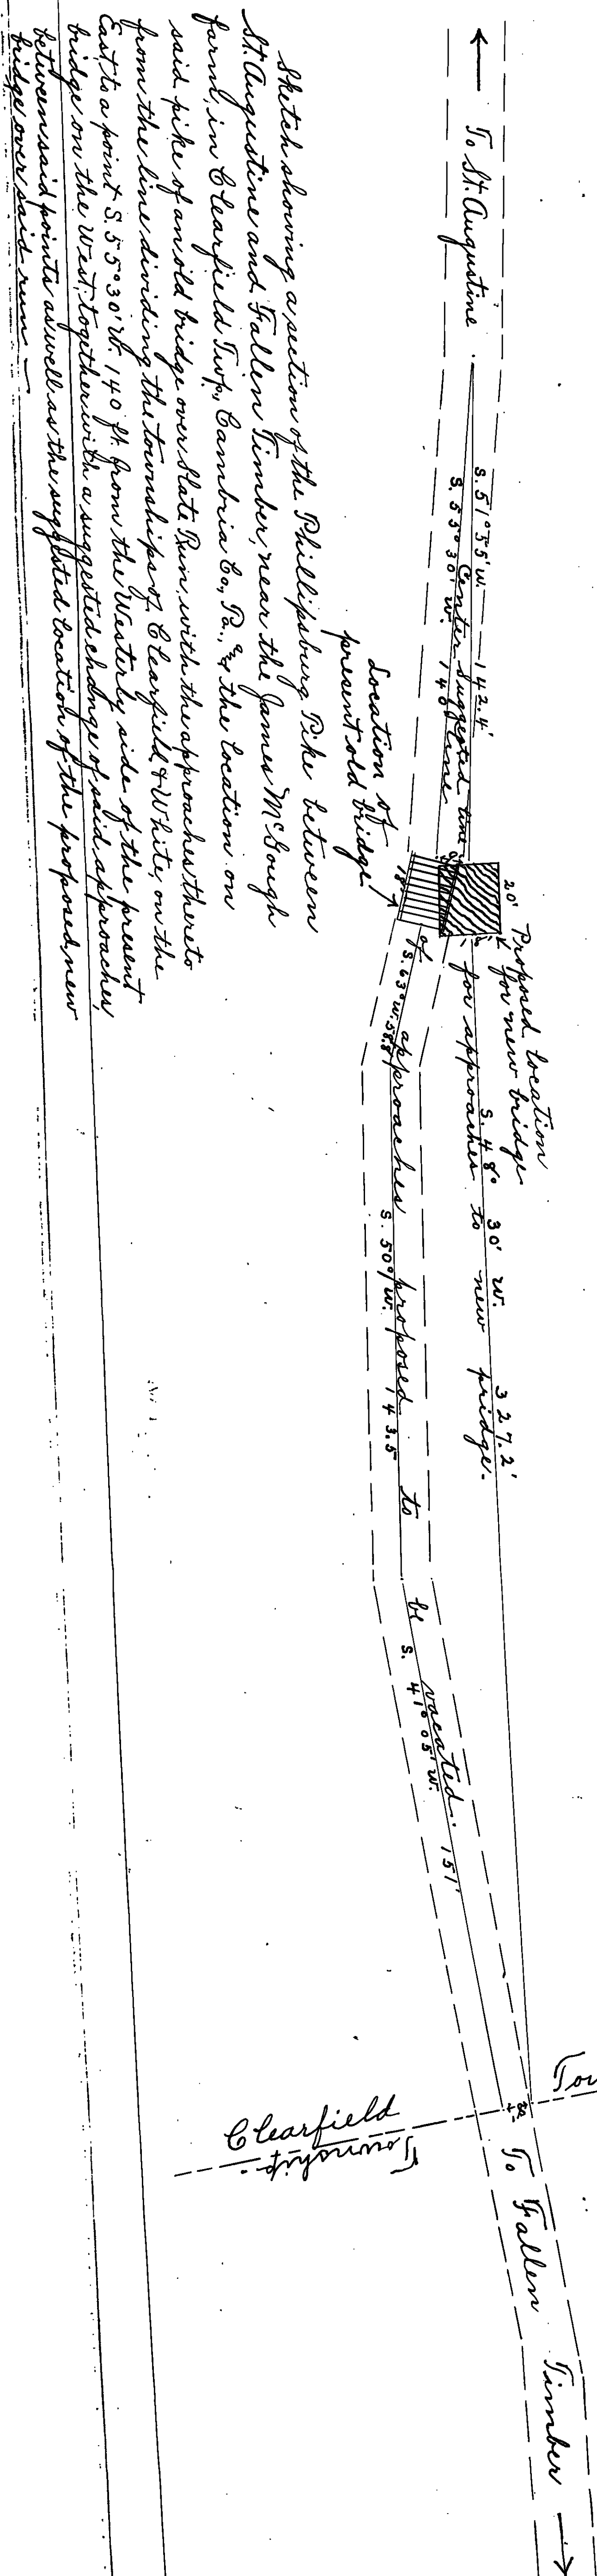 To St. Augustine
S. 51° 55' W. 142.4'
Center suggested line
S. 55° 30' W. 140'
20'
Proposed location
for new bridge
for approaches to new bridge.
S. 48° 30' W. 327.2'
Location of
present old bridge
18'
of approaches proposed to be vacated.
S. 63° W. 58.8'
S. 50° W. 143.5
S. 41° 05' W. 151'
Clearfield
Township.
To Fallen Timber
Sketch showing a section of the Phillipsburg Pike between
St. Augustine and Fallen Timber, near the James McGough
farm, in Clearfield Twp., Cambria Co., Pa., & the location on
said pike of an old bridge over Slate Run, with the approaches thereto
from the line dividing the townships of Clearfield & White, on the
East, to a point S. 55° 30' W. 140 ft. from the Westerly side of the present
bridge on the West, together with a suggested change of said approaches,
between said points as well as the suggested location of the proposed new
bridge over said run